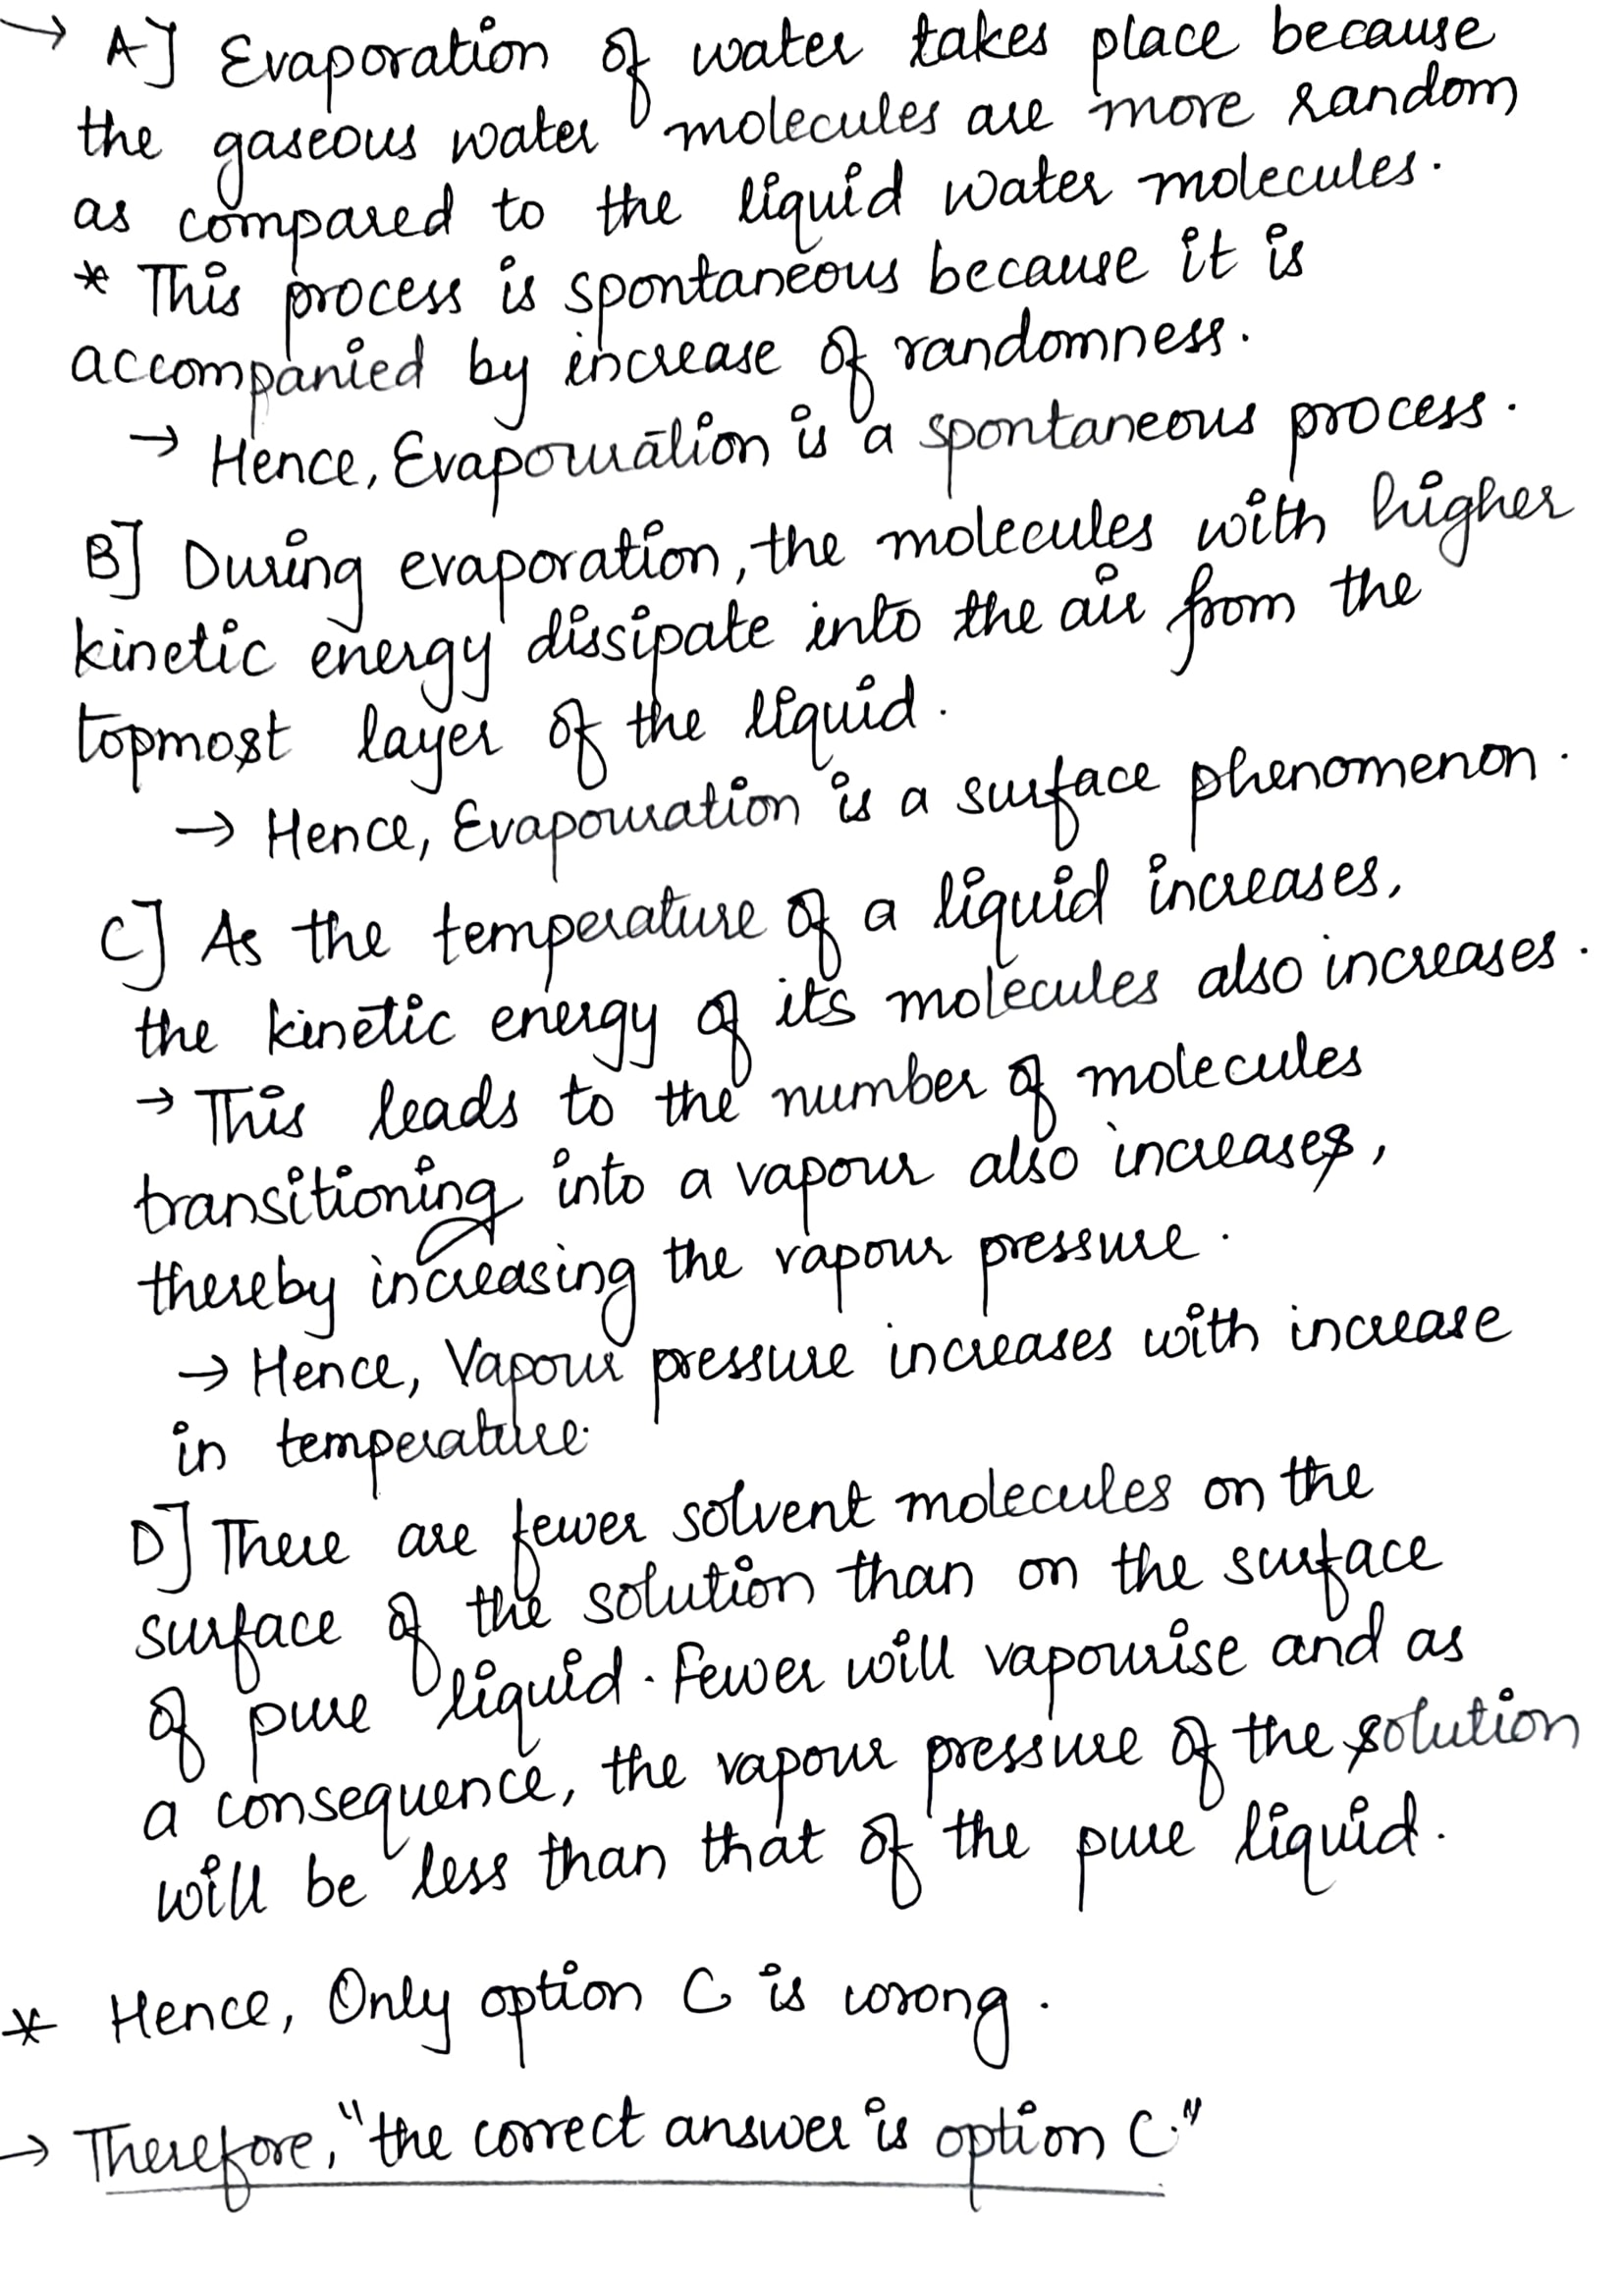 → A] Evaporation of water takes place because
the gaseous water molecules are more random
as compared to the liquid water molecules.
* This process is spontaneous because it is
accompanied by increase of randomness.
→ Hence, Evaporation is a spontaneous process.
B] During evaporation, the molecules with higher
kinetic energy dissipate into the air from the
topmost layer of the liquid.
→ Hence, Evaporation is a surface phenomenon.
C] As the temperature of a liquid increases,
the kinetic energy of its molecules also increases.
→ This leads to the number of molecules
transitioning into a vapour also increases,
thereby increasing the vapour pressure.
→ Hence, Vapour pressure increases with increase
in temperature.
D] There are fewer solvent molecules on the
surface of the solution than on the surface
of pure liquid. Fewer will vapourise and as
a consequence, the vapour pressure of the solution
will be less than that of the pure liquid.
* Hence, Only option C is wrong.
→ Therefore, "the correct answer is option C."